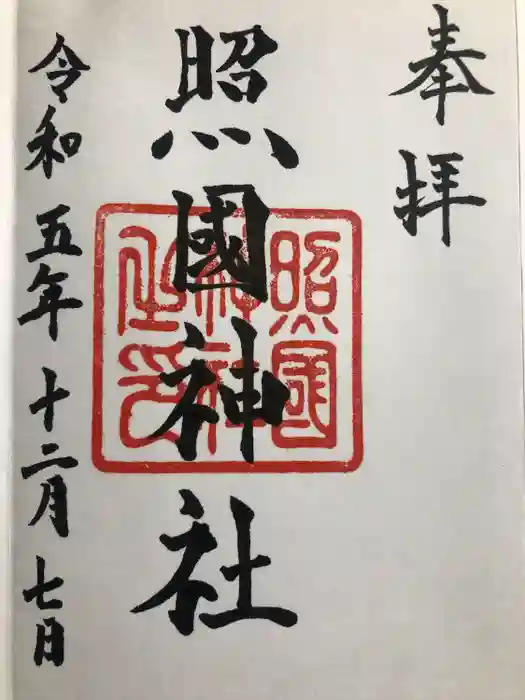 奉拝
照國神社
照國
神社
之印
令和五年十二月七日